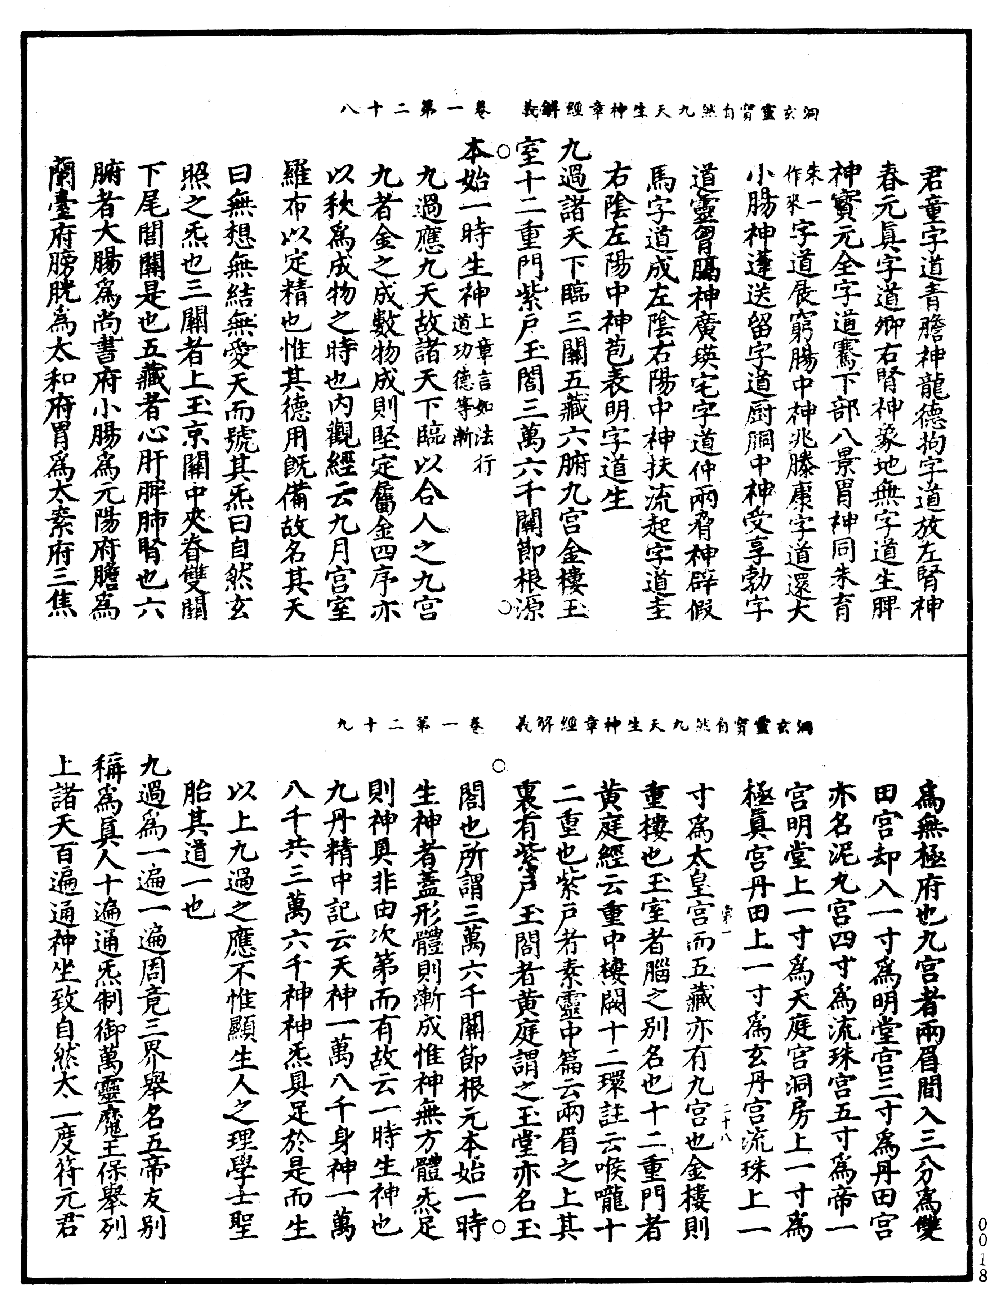 洞玄靈寶自然九天生神章經解義　卷一第二十八
君童字道青膽神龍德拘字道放左腎神
春元眞字道卿右腎神象地無字道生脾
神寳元全字道騫下部八景胃神同朱育
朱一作來字道展窮腸中神兆滕康字道還大
小腸神蓬送留字道厨胴中神受享勃字
道靈胷膈神廣瑛宅字道仲兩脅神辟假
馬字道成左陰右陽中神扶流起字道圭
右陰左陽中神苞表明字道生
九過諸天下臨三關五藏六腑九宫金樓玉
室十二重門紫戸玉閤三萬六千關節根源
本始一時生神上章言如法行道功德等漸
九過應九天故諸天下臨以合人之九宮
九者金之成數物成則堅定屬金四序亦
以秋爲成物之時也内觀經云九月宫室
羅布以定精也惟其德用旣備故名其天
曰無想無結無愛天而號其炁曰自然玄
照之炁也三關者上玉京關中夾脊雙關
下尾閭關是也五藏者心肝脾肺腎也六
腑者大腸爲尚書府小腸爲元陽府膽爲
蘭臺府膀胱爲太和府胃爲太素府三焦
洞玄靈寶自然九天生神章經解義　卷一第二十九
爲無極府也九宫者兩眉間入三分爲雙
田宫却入一寸爲明堂宫三寸爲丹田宫
亦名泥丸宫四寸爲流珠宫五寸爲帝一
宫明堂上一寸爲天庭宫洞房上一寸爲
極眞宫丹田上一寸爲玄丹宫流珠上一
寸爲太皇宫而五藏亦有九宫也金樓則
重樓也玉室者腦之别名也十二重門者
黄庭經云重中樓闕十二環註云喉嚨十
二重也紫戸者素靈中篇云兩眉之上其
裏有紫戸玉閤者黄庭謂之玉堂亦名玉
閤也所謂三萬六千關節根元本始一時
生神者蓋形體則漸成惟神無方體炁足
則神具非由次第而有故云一時生神也
九丹精中記云天神一萬八千身神一萬
八千共三萬六千神神炁具足於是而生
以上九過之應不惟顯生人之理學士聖
胎其道一也
九過爲一遍一遍周竟三界舉名五帝友别
稱爲眞人十遍通炁制御萬靈魔王保舉列
上諸天百遍通神坐致自然太一度符元君
0018